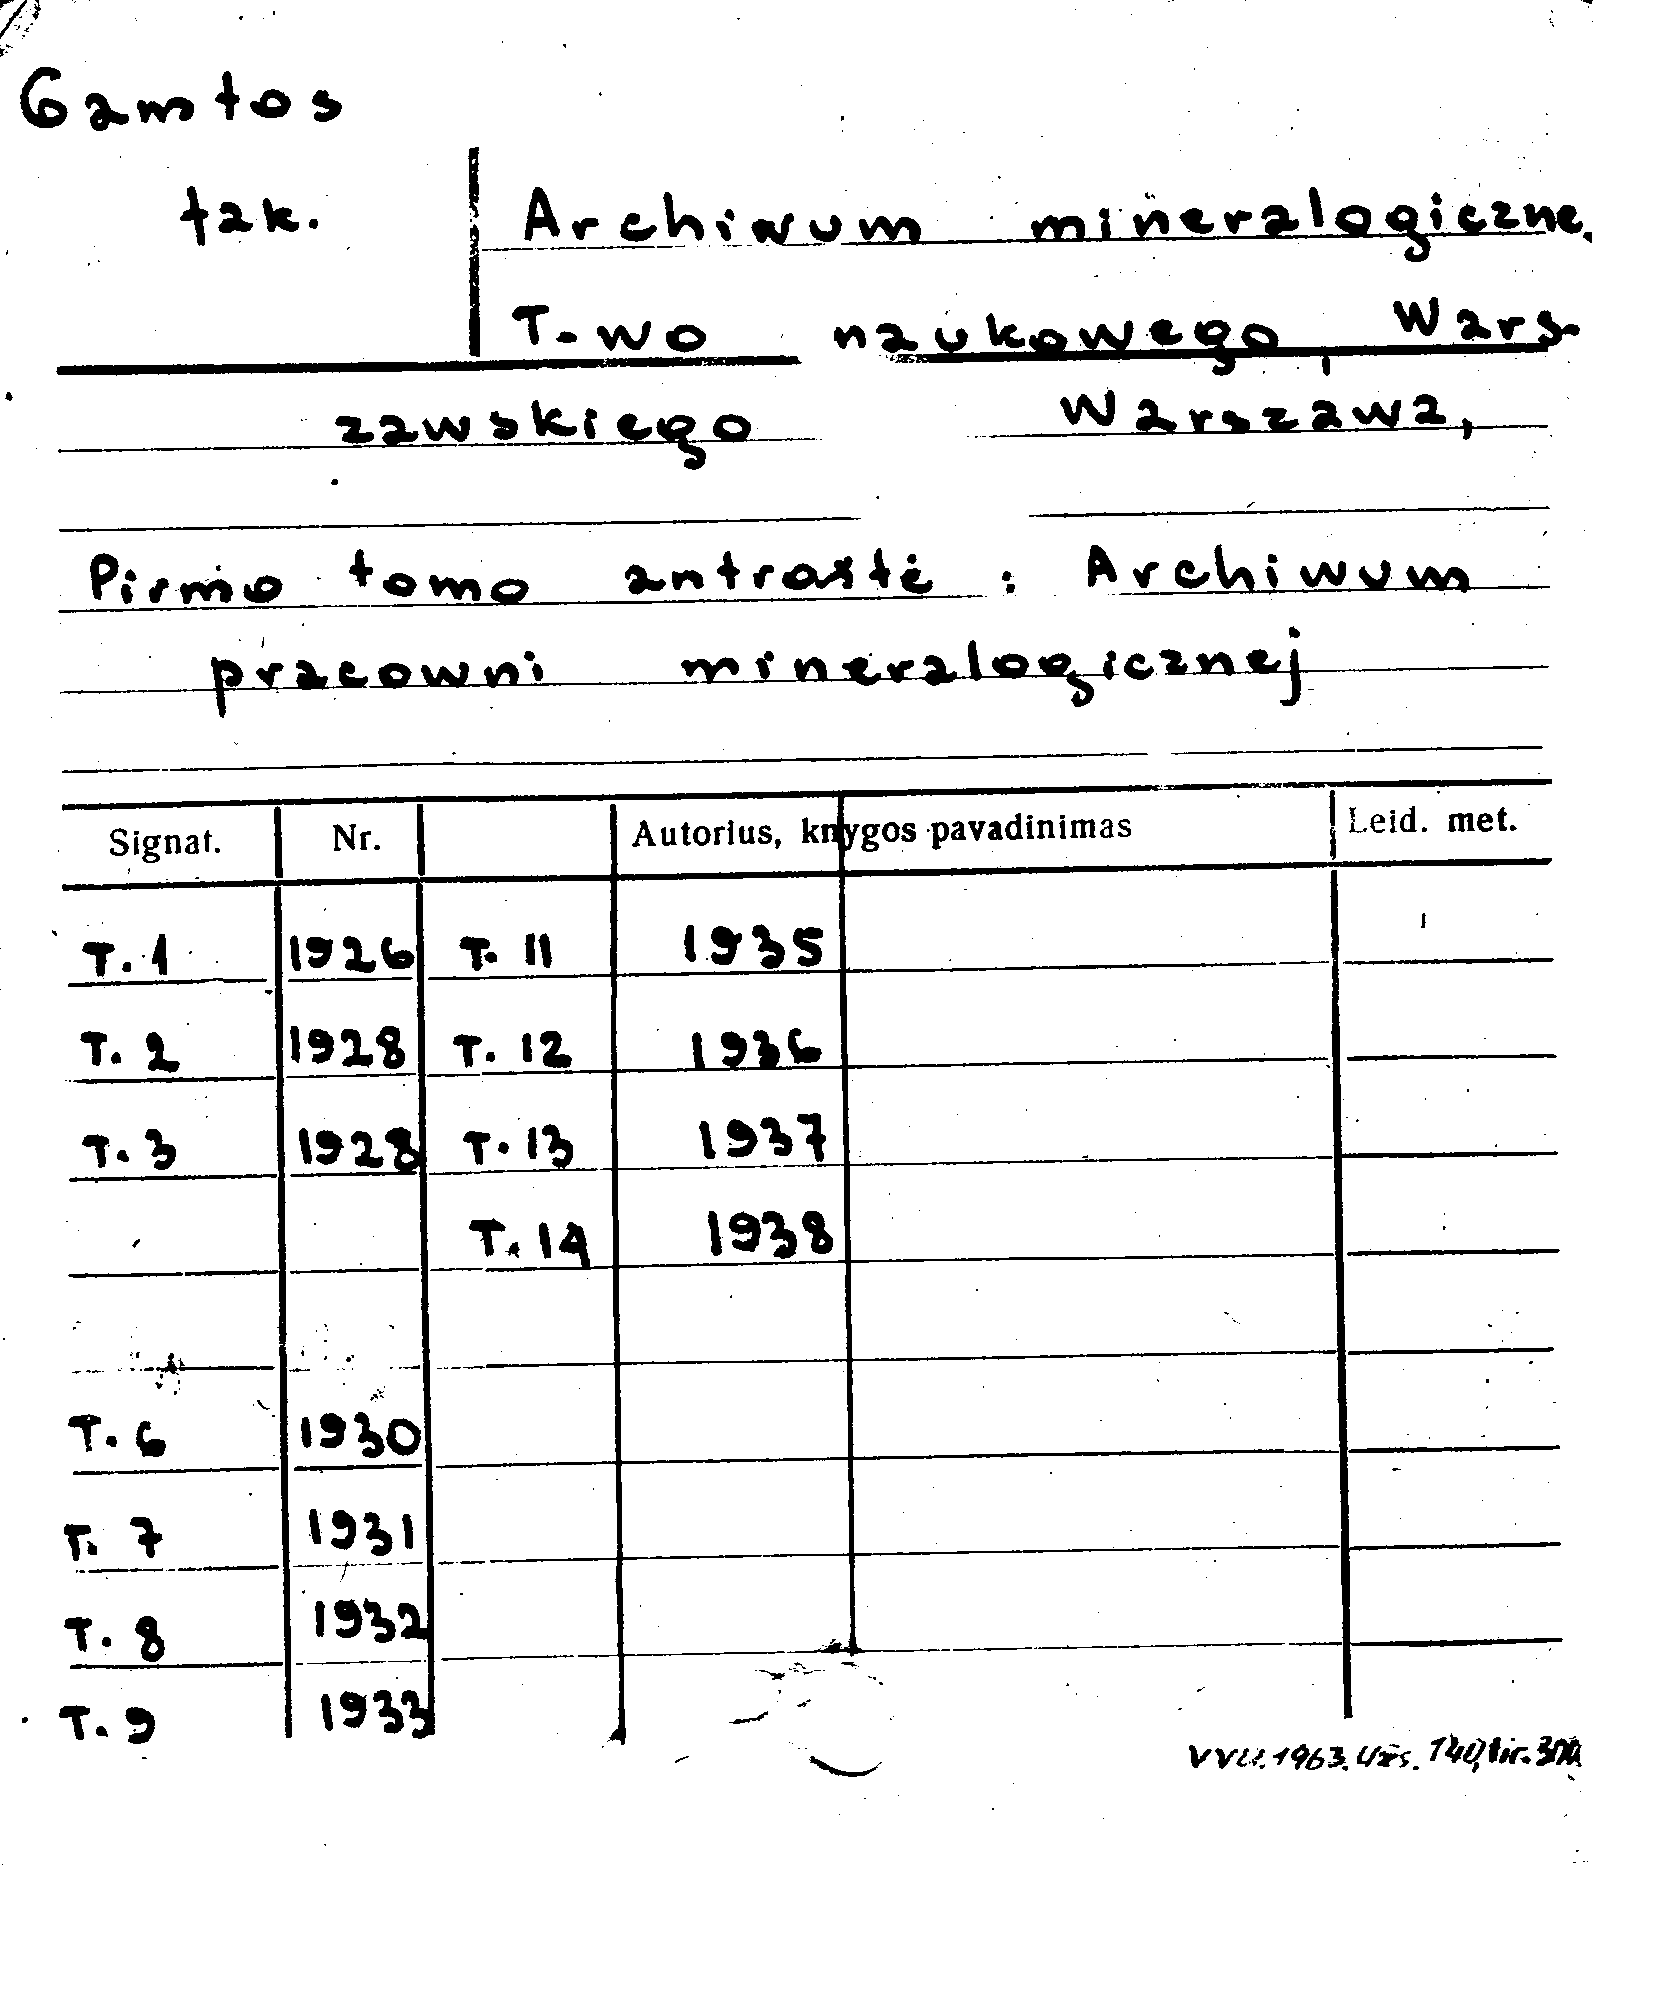 Gamtos
tak.
Archiwum mineralogiczne.
T-wo naukowego, Wars-
zawskiego Warszawa,
Pirmo tomo antraštė: Archiwum
pracowni mineralogicznej
Signat. Nr. Autorius, knygos pavadinimas Leid. met.
T. 1 1926 T. 11 1935
T. 2 1928 T. 12 1936
T. 3 1928 T. 13 1937
T. 14 1938
T. 6 1930
T. 7 1931
T. 8 1932
T. 9 1933
VVU. 1963. Užs. 140,